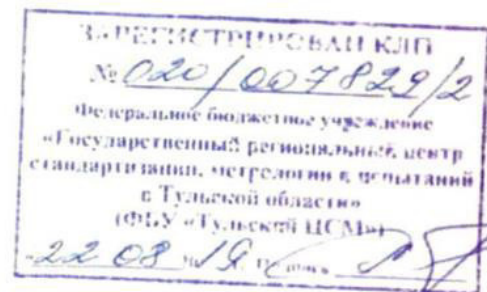 ЗАРЕГИСТРИРОВАН КЛП
№ 020/007829/2
Федеральное бюджетное учреждение
«Государственный региональный центр
стандартизации, метрологии и испытаний
в Тульской области»
(ФБУ «Тульский ЦСМ»)
«22 08 2019 Подпись